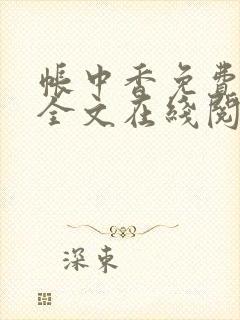 帐中香免费
全文在线阅
深束